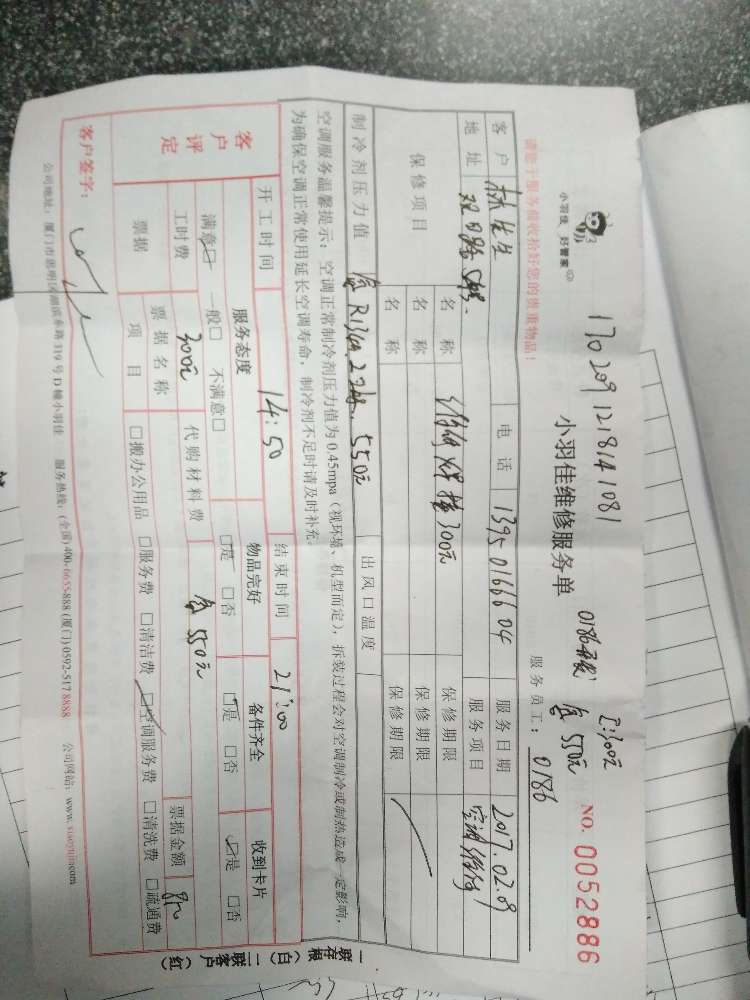 170209121814 1081
小羽佳 好管家
小羽佳维修服务单
NO. 0052886
请您于服务前收拾好您的贵重物品!
服务员工: 0186
工:300元
550元
客户 林先生 电话 13950166604 服务日期 2017.02.09
地址 服务项目 空调维修
保修项目 名称 维修焊接300元 保修期限
名称 保修期限
名称 保修期限
制冷剂压力值 R134a 550元 出风口温度
空调服务温馨提示:空调正常制冷剂压力值为0.45mpa(视环境、机型而定),拆装过程会对空调制冷或制热造成一定影响,
为确保空调正常使用延长空调寿命,制冷剂不足时请及时补充。
开工时间 14:50 结束时间 21:00
客户评定 服务态度 物品完好 备件齐全 收到卡片
满意□ 一般□ 不满意□ □是 □否 □是 □否 □是 □否
工时费 300元 代购材料费 550元 票据金额
票据 票据名称 项目 □搬办公用品 □服务费 □清洁费 □空调服务费 □清洗费 □疏通费
客户签字:
公司地址:厦门市思明区湖滨东路319号D幢小羽佳 服务热线:(全国)400-6655-888 (厦门)0592-517 8888 公司网站:www.xiaoyujia.com
一联存根(白) 二联客户(红)